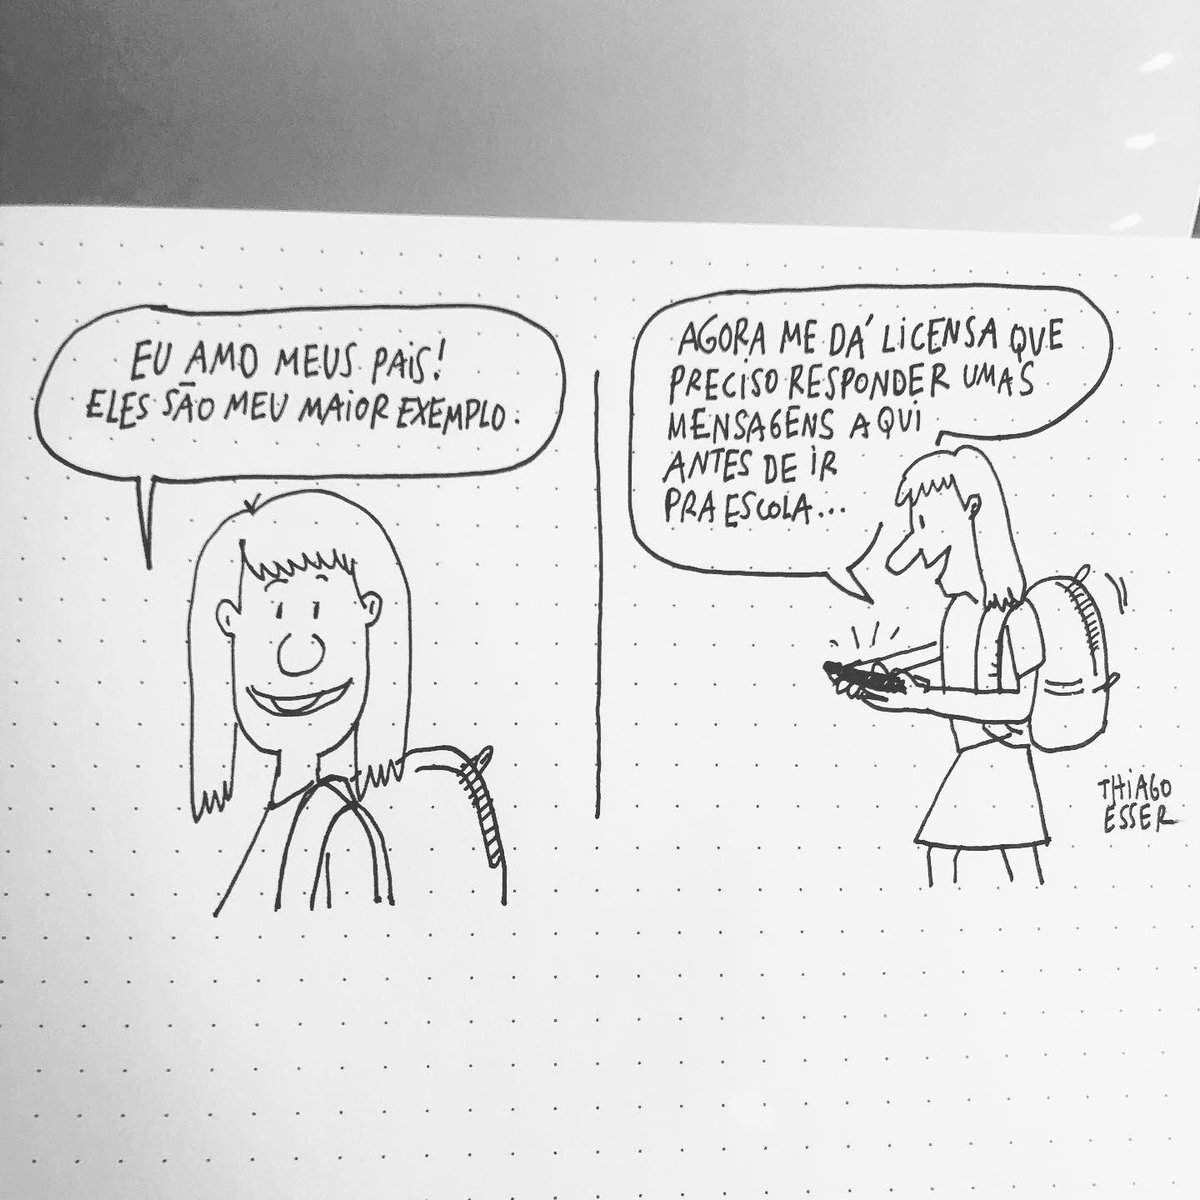 EU AMO MEUS PAIS!
ELES SÃO MEU MAIOR EXEMPLO.
AGORA ME DÁ LICENSA QUE
PRECISO RESPONDER UMAS
MENSAGENS AQUI
ANTES DE IR
PRA ESCOLA...
THIAGO
ESSER